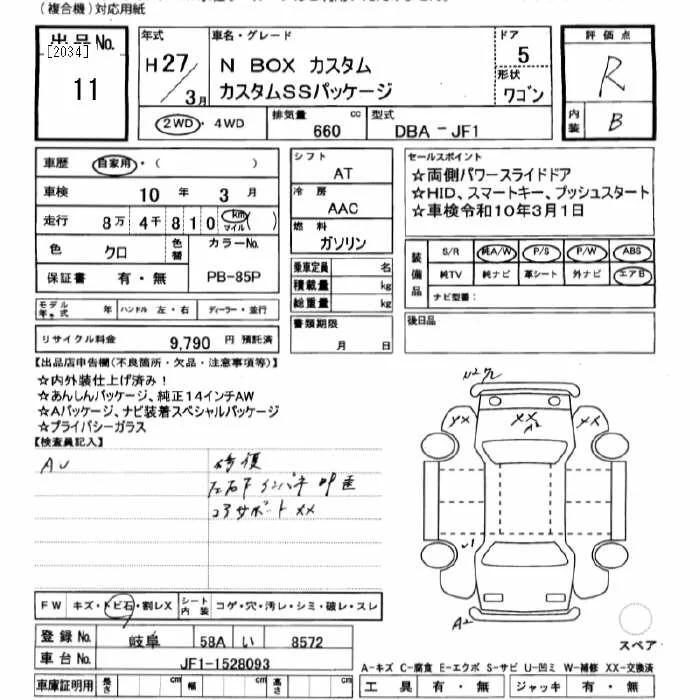 (複合機)対応用紙
出品No.
[2034]
11
年式
H27/3月
車名・グレード
N BOX カスタム
カスタムSSパッケージ
ドア
5
形状
ワゴン
評価点
R
内装
B
2WD・4WD
排気量
660 cc
型式
DBA-JF1
車歴 自家用・( )
車検 10年 3月
走行 8万4千810 km マイル ( )
色 クロ
色替
カラーNo.
PB-85P
保証書 有・無
モデル年式 年 ハンドル 左・右 ディーラー・並行
リサイクル料金 9,790 円 預託済
シフト
AT
冷房
AAC
燃料
ガソリン
乗車定員 名
積載量 kg
総重量 kg
書類期限
月 日
セールスポイント
☆両側パワースライドドア
☆HID、スマートキー、プッシュスタート
☆車検令和10年3月1日
装備品
S/R 純A/W P/S P/W ABS
純TV 純ナビ 革シート 外ナビ エアB
ナビ型番:
後日品
【出品店申告欄(不良箇所・欠品・注意事項等)】
☆内外装仕上げ済み!
☆あんしんパッケージ、純正14インチAW
☆Aパッケージ、ナビ装着スペシャルパッケージ
☆プライバシーガラス
【検査員記入】
AU
修復
左右Fインパネ
コアサポート XX
XX
A2
XX
XX
A2
FW キズ・トビ石・割レX
シート内装 コゲ・穴・汚レ・シミ・破レ・スレ
登録No. 岐阜 58A い 8572
車台No. JF1-1528093
車庫証明用 長さ cm 幅 cm 高さ cm
スペア
A-キズ C-腐食 E-エクボ S-サビ U-凹ミ W-補修 XX-交換済
工具 有・無 ジャッキ 有・無